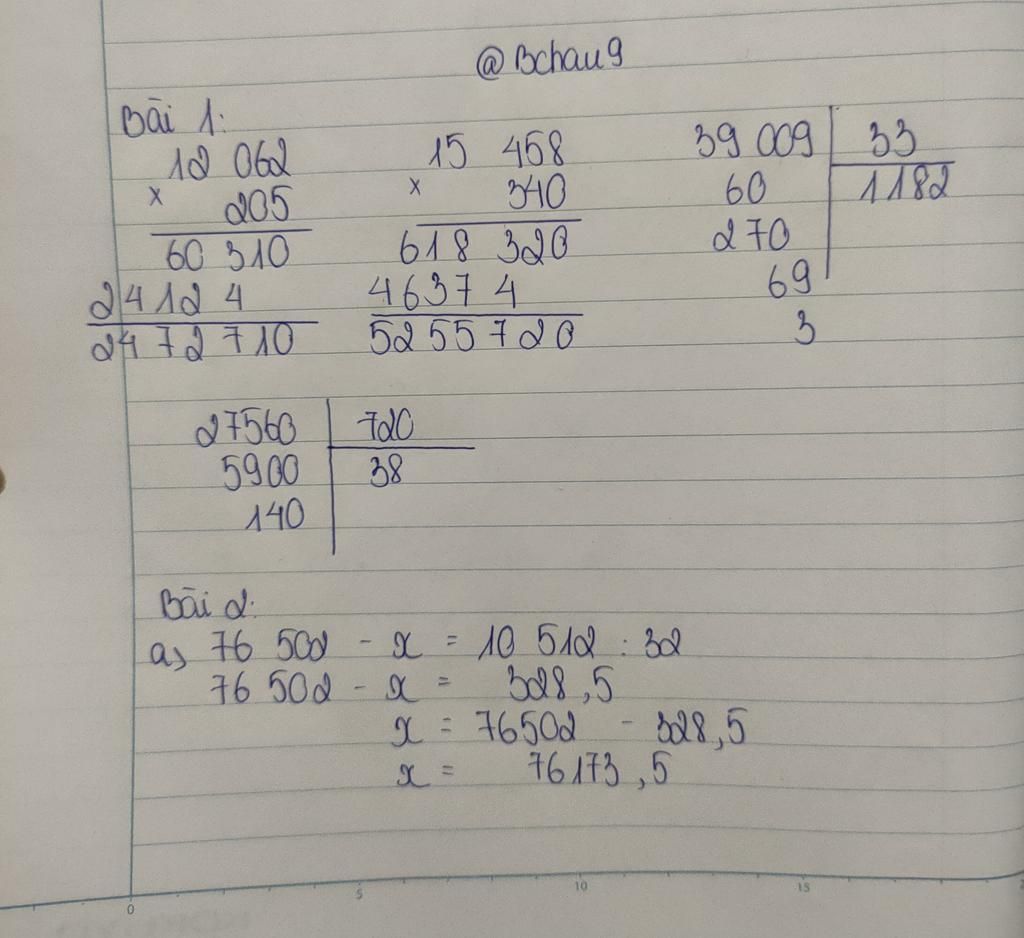 @Bchau9
Bài 1:
12 062
x 205
60 310
24 12 4
24 72 710
15 458
x 340
618 320
4637 4
5255 720
39 009 33
60 1182
270
69
3
27560 720
5900 38
140
Bài 2:
a, 76 502 - x = 10 512 : 32
76 502 - x = 328,5
x = 76502 - 328,5
x = 76173,5
0 5 10 15